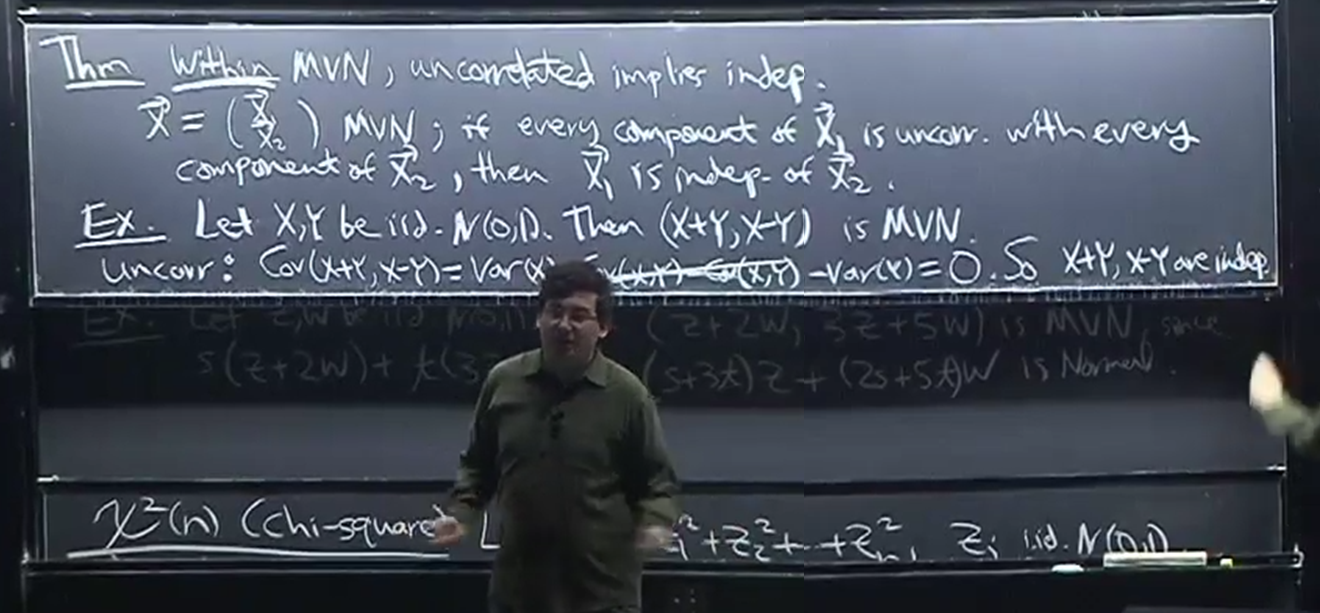 Thm Within MVN, uncorrelated implies indep.
X⃗ = (X⃗₁ X⃗₂) MVN; if every component of X⃗₁ is uncorr. with every
component of X⃗₂, then X⃗₁ is indep. of X⃗₂.
Ex. Let X,Y be iid. N(0,1). Then (X+Y, X-Y) is MVN.
uncorr: Cov(X+Y, X-Y) = Var(X) (X,Y) - Cov(X,Y) - Var(Y) = 0. So X+Y, X-Y are indep.
Ex. Let Z,W be iid N(0,1) (Z+2W, 3Z+5W) is MVN, since
s(Z+2W) + t(3 (s+3t)Z + (2s+5t)W is Normal.
χ²(n) (Chi-square) ² + Z₂² + ... + Zₙ², Zᵢ iid. N(0,1)